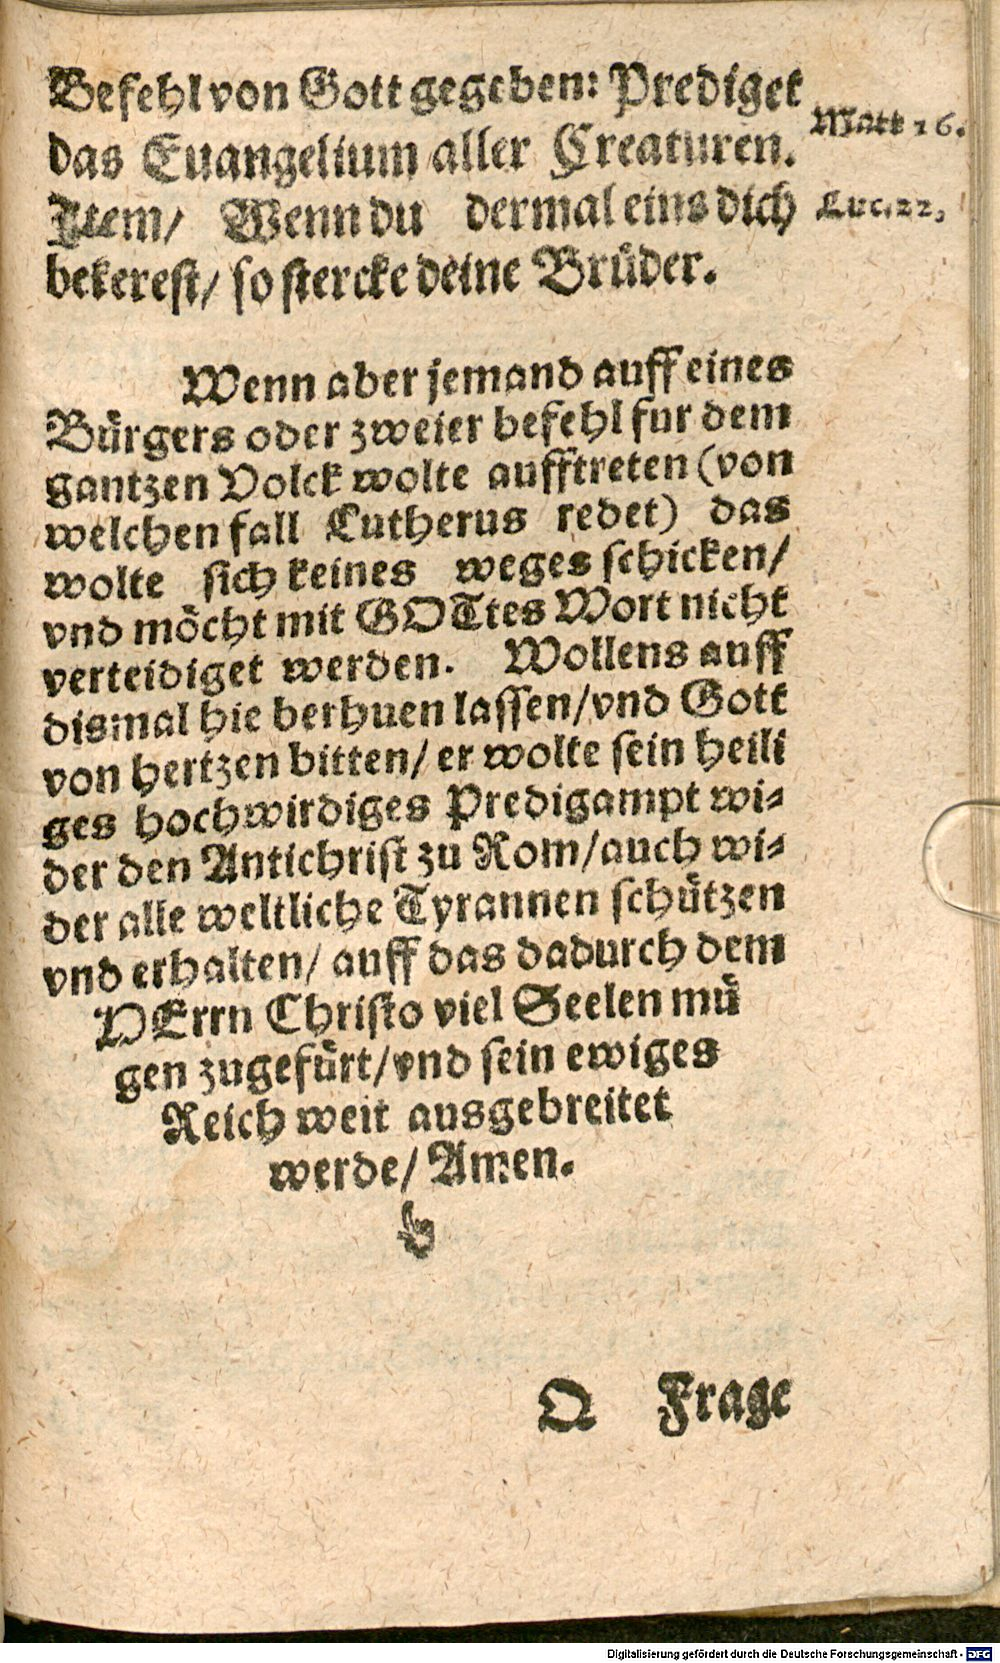 Befehl von Gott gegeben: Prediget
Matt 16.
das Euangelium aller Creaturen.
Item/ Wenn du dermal eins dich
Luc. 22,
bekerest/ so stercke deine Brüder.
Wenn aber jemand auff eines
Bürgers oder zweier befehl fur dem
gantzen Volck wolte aufftreten (von
welchen fall Lutherus redet) das
wolte sich keines weges schicken/
vnd möcht mit GOTtes Wort nicht
verteidiget werden. Wollens auff
dismal hie berhuen lassen/ vnd Gott
von hertzen bitten/ er wolte sein heili
ges hochwirdiges Predigampt wi-
der den Antichrist zu Rom/ auch wi-
der alle weltliche Tyrannen schützen
vnd erhalten/ auff das dadurch dem
HErrn Christo viel Seelen mü
gen zugefürt/ vnd sein ewiges
Reich weit ausgebreitet
werde/ Amen.
Q Frage
Digitalisierung gefördert durch die Deutsche Forschungsgemeinschaft - DFG